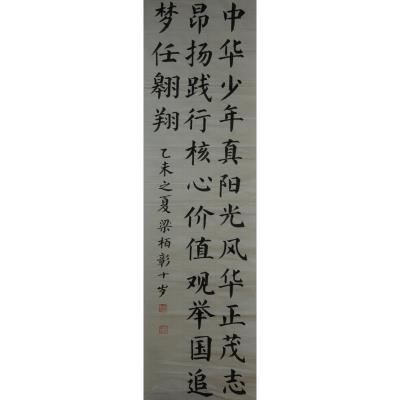 中华少年真阳光风华正茂志
昂扬践行核心价值观举国追
梦任翱翔
乙未之夏梁栢彰十岁